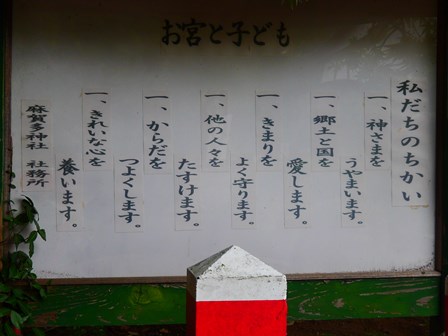 お宮と子ども
私だちのちかい
一、神さまを
うやまいます。
一、郷土と国を
愛します。
一、きまりを
よく守ります。
一、他の人々を
たすけます。
一、からだを
つよくします。
一、きれいな心を
養います。
麻賀多神社 社務所